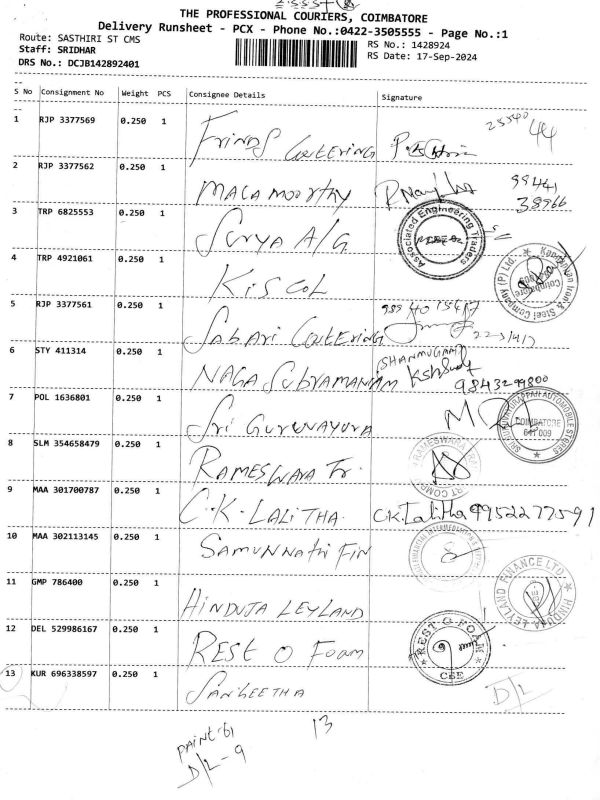 THE PROFESSIONAL COURIERS, COIMBATORE
Delivery Runsheet - PCX - Phone No.:0422-3505555 - Page No.:1
Route: SASTHIRI ST CMS
RS No.: 1428924
Staff: SRIDHAR
RS Date: 17-Sep-2024
DRS No.: DCJB142892401
S No Consignment No Weight PCS Consignee Details Signature
1 RJP 3377569 0.250 1 Frinds Catering 44
2 RJP 3377562 0.250 1 MALA MOORTHY 99441
38966
3 TRP 6825553 0.250 1 Surya A/G Associated Engineering Traders
4 TRP 4921061 0.250 1 KisCoL Steel Company (P) Ltd. Coimbatore
5 RJP 3377561 0.250 1 Sabari Catering
6 STY 411314 0.250 1 NAGA SUBRAMANIAM SHANMUGAM
9843299800
7 POL 1636801 0.250 1 Sri Guruvayura COIMBATORE 641 009
8 SLM 354658479 0.250 1 RAMESWARA Tr.
9 MAA 301700787 0.250 1 C.K. LALITHA. C.K. Lalitha 9952277591
10 MAA 302113145 0.250 1 SAMUNNATHI FIN
11 GMP 786400 0.250 1 HINDUJA LEYLAND HINDUJA LEYLAND FINANCE LTD
12 DEL 529986167 0.250 1 REST O FOAM REST-O-FOAM CBE
13 KUR 696338597 0.250 1 SANGEETHA D/L
13
D/L - 9